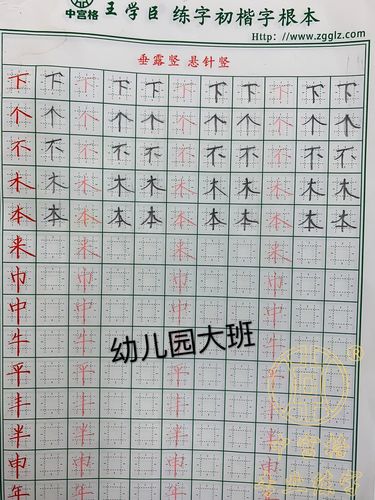 中宫格 王学臣 练字初楷字根本
Http: //www.zgglz.com
垂露竖 悬针竖
下 下 下 下 下 下 下 下 下 下 下
个 个 个 个 个 个 个 个 个 个 个
不 不 不 不 不 不 不 不 不 不 不
木 木 木 木 木 木 木 木 木 木 木
本 本 本 本 本 本 本 本 本 本 本
来 来 来 来
巾 巾 巾 巾
中 中 中 中
牛 牛 牛 牛
幼儿园大班
平 平 平 平
丰 丰 丰 丰
半 半 半 半
申 申 申 申
年 年 年 年
中宫格